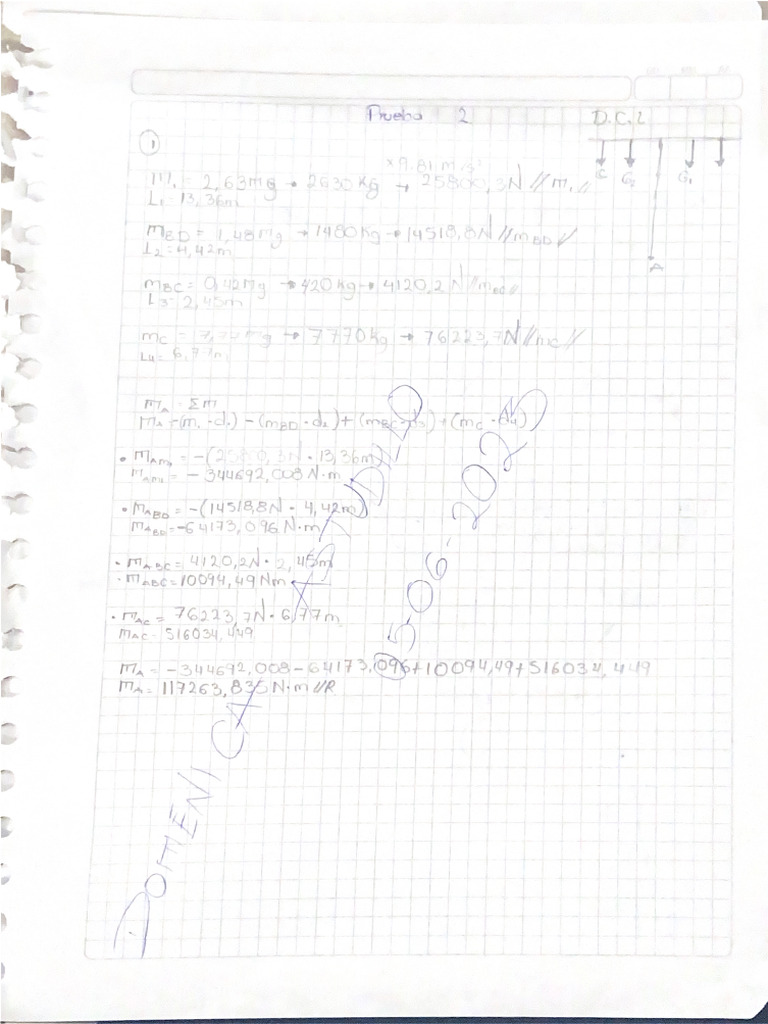 Prueba 2
D.C.L
1
× 9.81 m/s²
m₁ = 2,63mg → 2630 kg → 25800,3N // m₁ //
L₁ = 13,36m
C G₂ G₁
mBD = 1,48mg → 1480kg → 14518,8N // mBD //
L₂ = 4,42m
A
mBC = 0,42mg → 420 kg → 4120,2 N // mBC //
L₃ = 2,45m
mC = 7,77mg → 7770kg → 76223,7N // mC //
L₄ = 6,77m
mA = Σm
mA = -(m₁ · d₁) - (mBD · d₂) + (mBC · d₃) + (mC · d₄)
• mAm₁ = -(25800,3N · 13,36m)
mAm₁ = - 344692,008 N·m
• mABD = -(14518,8N · 4,42m)
mABD = -64173,096 N·m
• mABC = 4120,2N · 2,45m
• mABC = 10094,49 Nm
• mAC = 76223,7N · 6,77m
mAC = 516034,449
mA = -344692,008 - 64173,096 + 10094,49 + 516034,449
mA = 117263,835 N·m //R
DOMENICA ASTUDILLO
05-06-2025